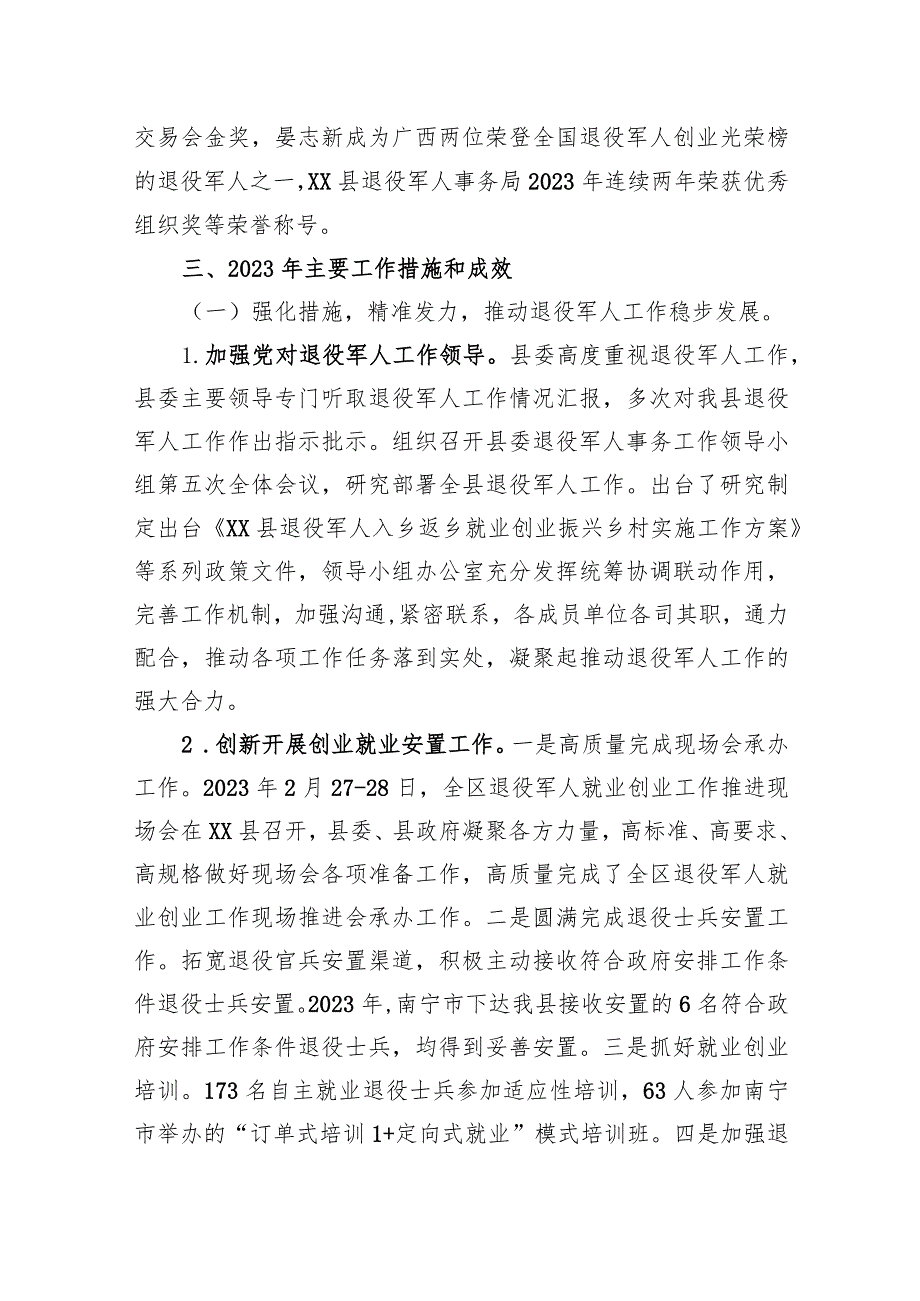 交易会金奖，晏志新成为广西两位荣登全国退役军人创业光荣榜
的退役军人之一,XX 县退役军人事务局 2023 年连续两年荣获优秀
组织奖等荣誉称号。
三、2023 年主要工作措施和成效
（一）强化措施，精准发力，推动退役军人工作稳步发展。
1.加强党对退役军人工作领导。县委高度重视退役军人工作，
县委主要领导专门听取退役军人工作情况汇报，多次对我县退役
军人工作作出指示批示。组织召开县委退役军人事务工作领导小
组第五次全体会议，研究部署全县退役军人工作。出台了研究制
定出台《XX 县退役军人入乡返乡就业创业振兴乡村实施工作方案》
等系列政策文件，领导小组办公室充分发挥统筹协调联动作用，
完善工作机制，加强沟通,紧密联系，各成员单位各司其职，通力
配合，推动各项工作任务落到实处，凝聚起推动退役军人工作的
强大合力。
2 .创新开展创业就业安置工作。一是高质量完成现场会承办
工作。2023 年 2 月 27-28 日，全区退役军人就业创业工作推进现
场会在 XX 县召开，县委、县政府凝聚各方力量，高标准、高要求、
高规格做好现场会各项准备工作，高质量完成了全区退役军人就
业创业工作现场推进会承办工作。二是圆满完成退役士兵安置工
作。拓宽退役官兵安置渠道，积极主动接收符合政府安排工作条
件退役士兵安置。2023 年,南宁市下达我县接收安置的 6 名符合政
府安排工作条件退役士兵，均得到妥善安置。三是抓好就业创业
培训。173 名自主就业退役士兵参加适应性培训，63 人参加南宁
市举办的“订单式培训 1+定向式就业”模式培训班。四是加强退